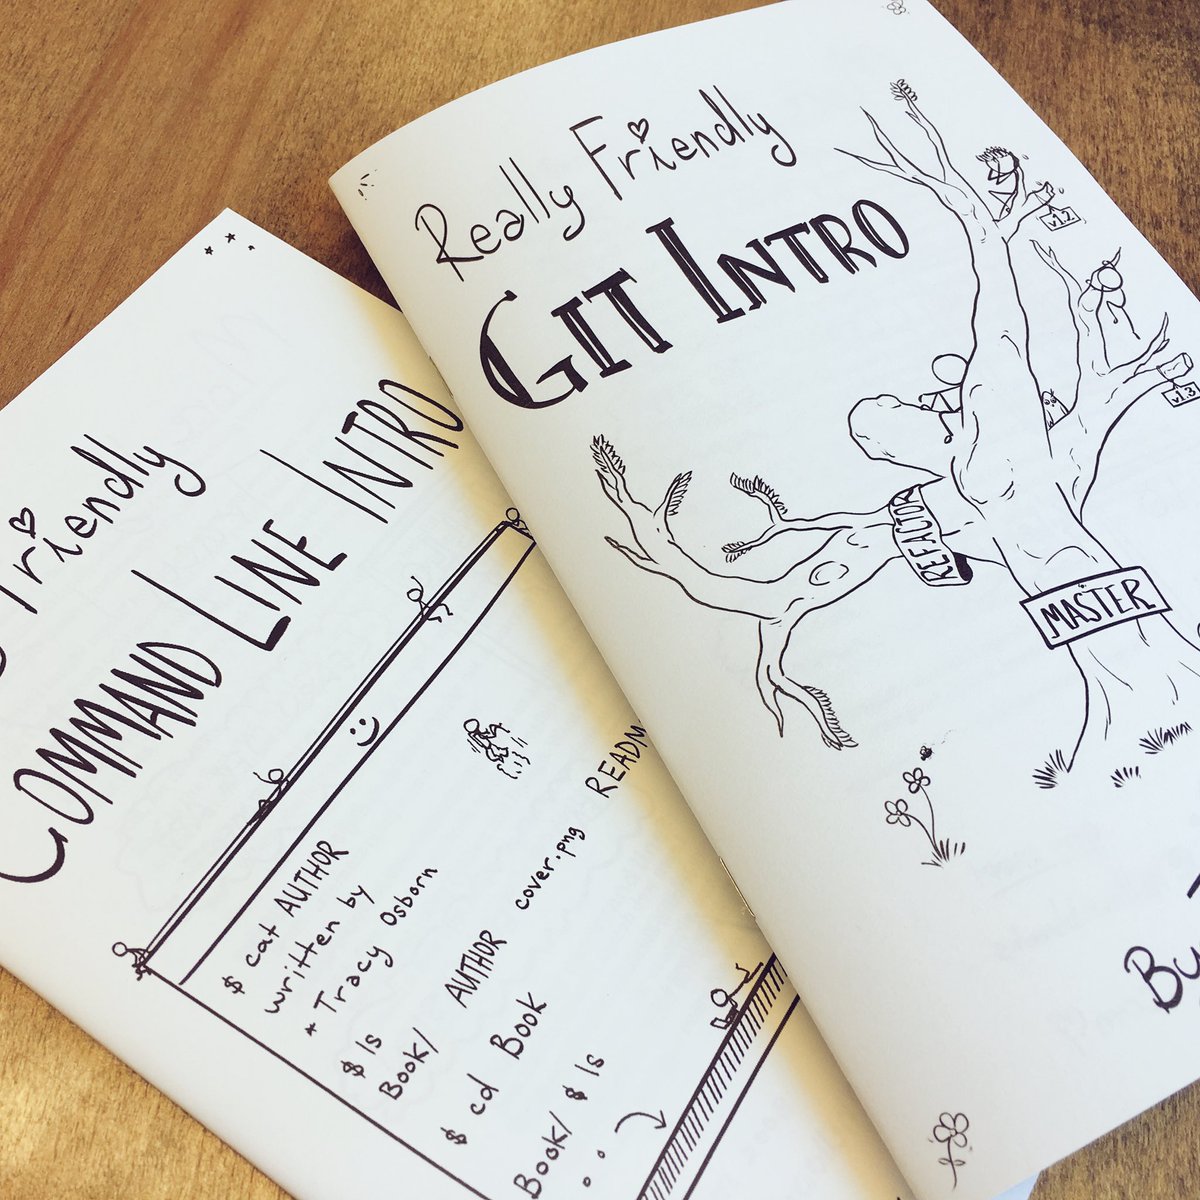 Really Friendly
GIT INTRO
v1.2
v1.3
REFACTOR
MASTER
Friendly
COMMAND LINE INTRO
$ cat AUTHOR
written by
* Tracy Osborn
$ ls
Book/ AUTHOR cover.png
$ cd Book
Book/ $ ls